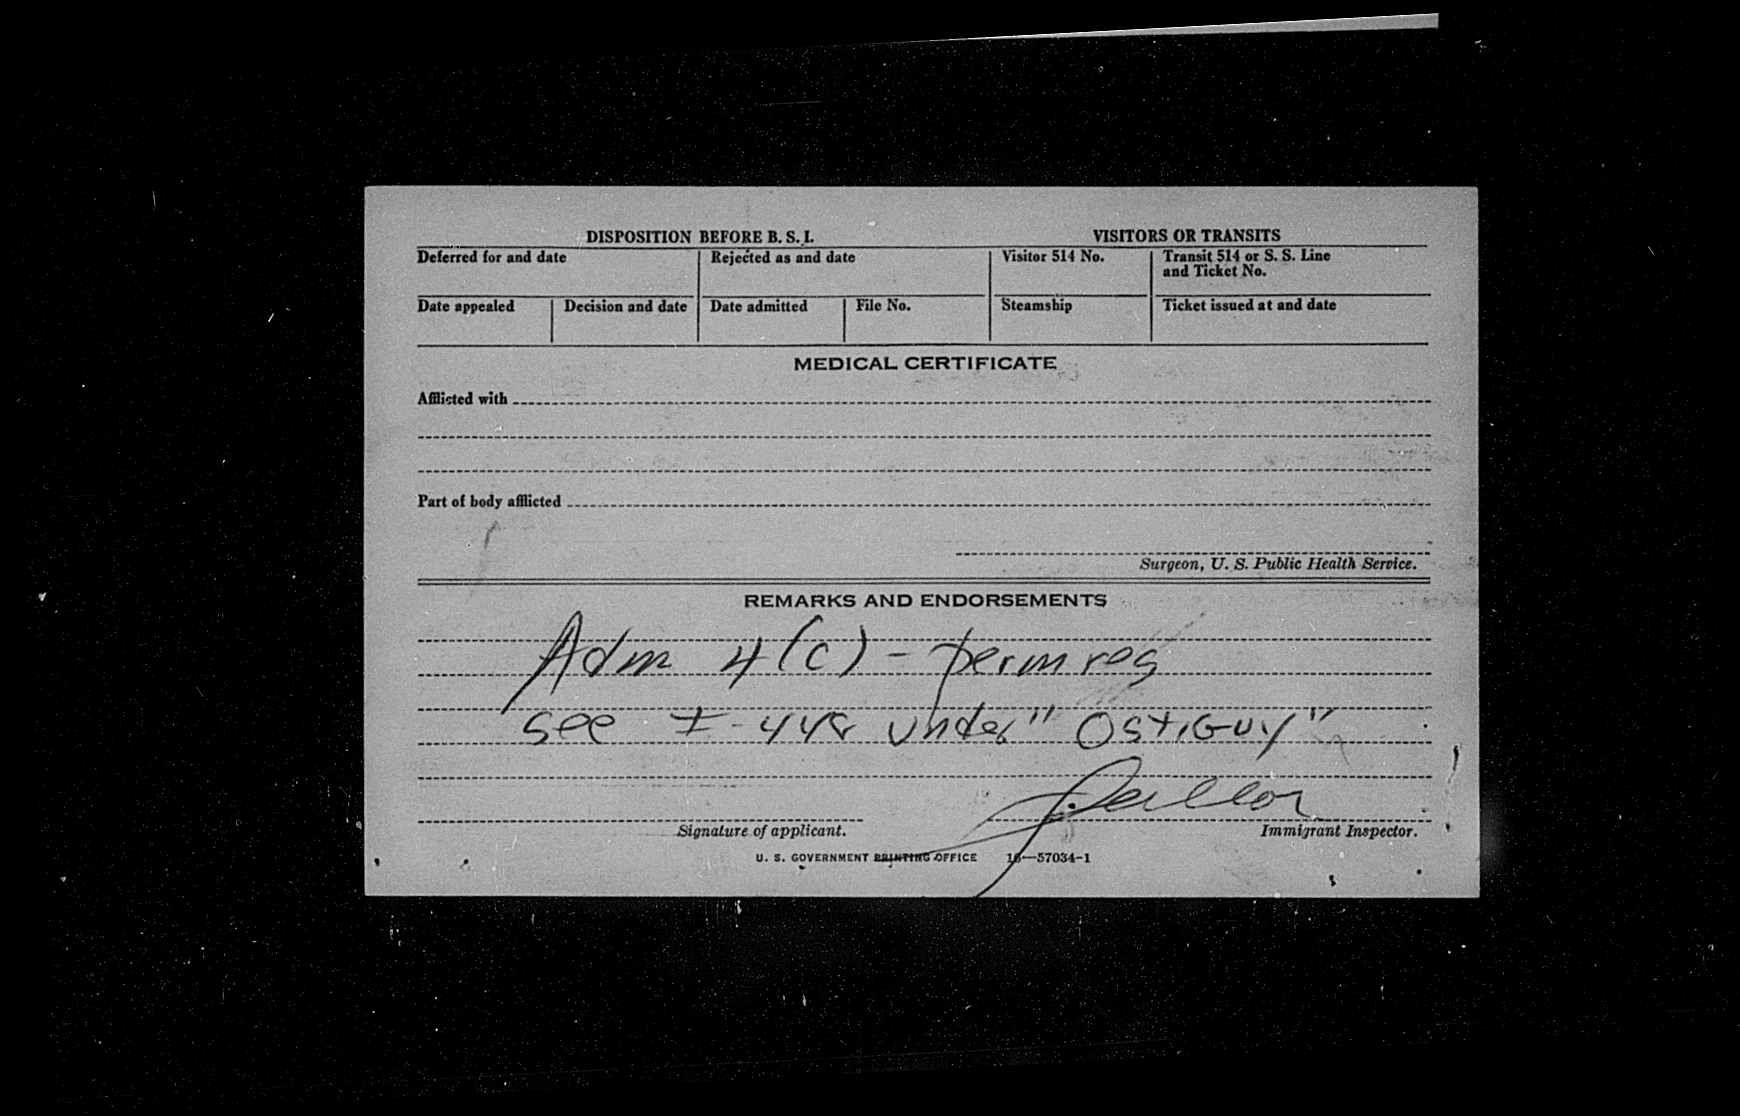 DISPOSITION BEFORE B. S. I.
VISITORS OR TRANSITS
Deferred for and date
Rejected as and date
Visitor 514 No.
Transit 514 or S. S. Line
and Ticket No.
Date appealed
Decision and date
Date admitted
File No.
Steamship
Ticket issued at and date
MEDICAL CERTIFICATE
Afflicted with
Part of body afflicted
Surgeon, U. S. Public Health Service.
REMARKS AND ENDORSEMENTS
Adm 4(c) - perm res
see I-448 under "Ostiguy"
Signature of applicant.
Immigrant Inspector.
U. S. GOVERNMENT PRINTING OFFICE 16—57034-1